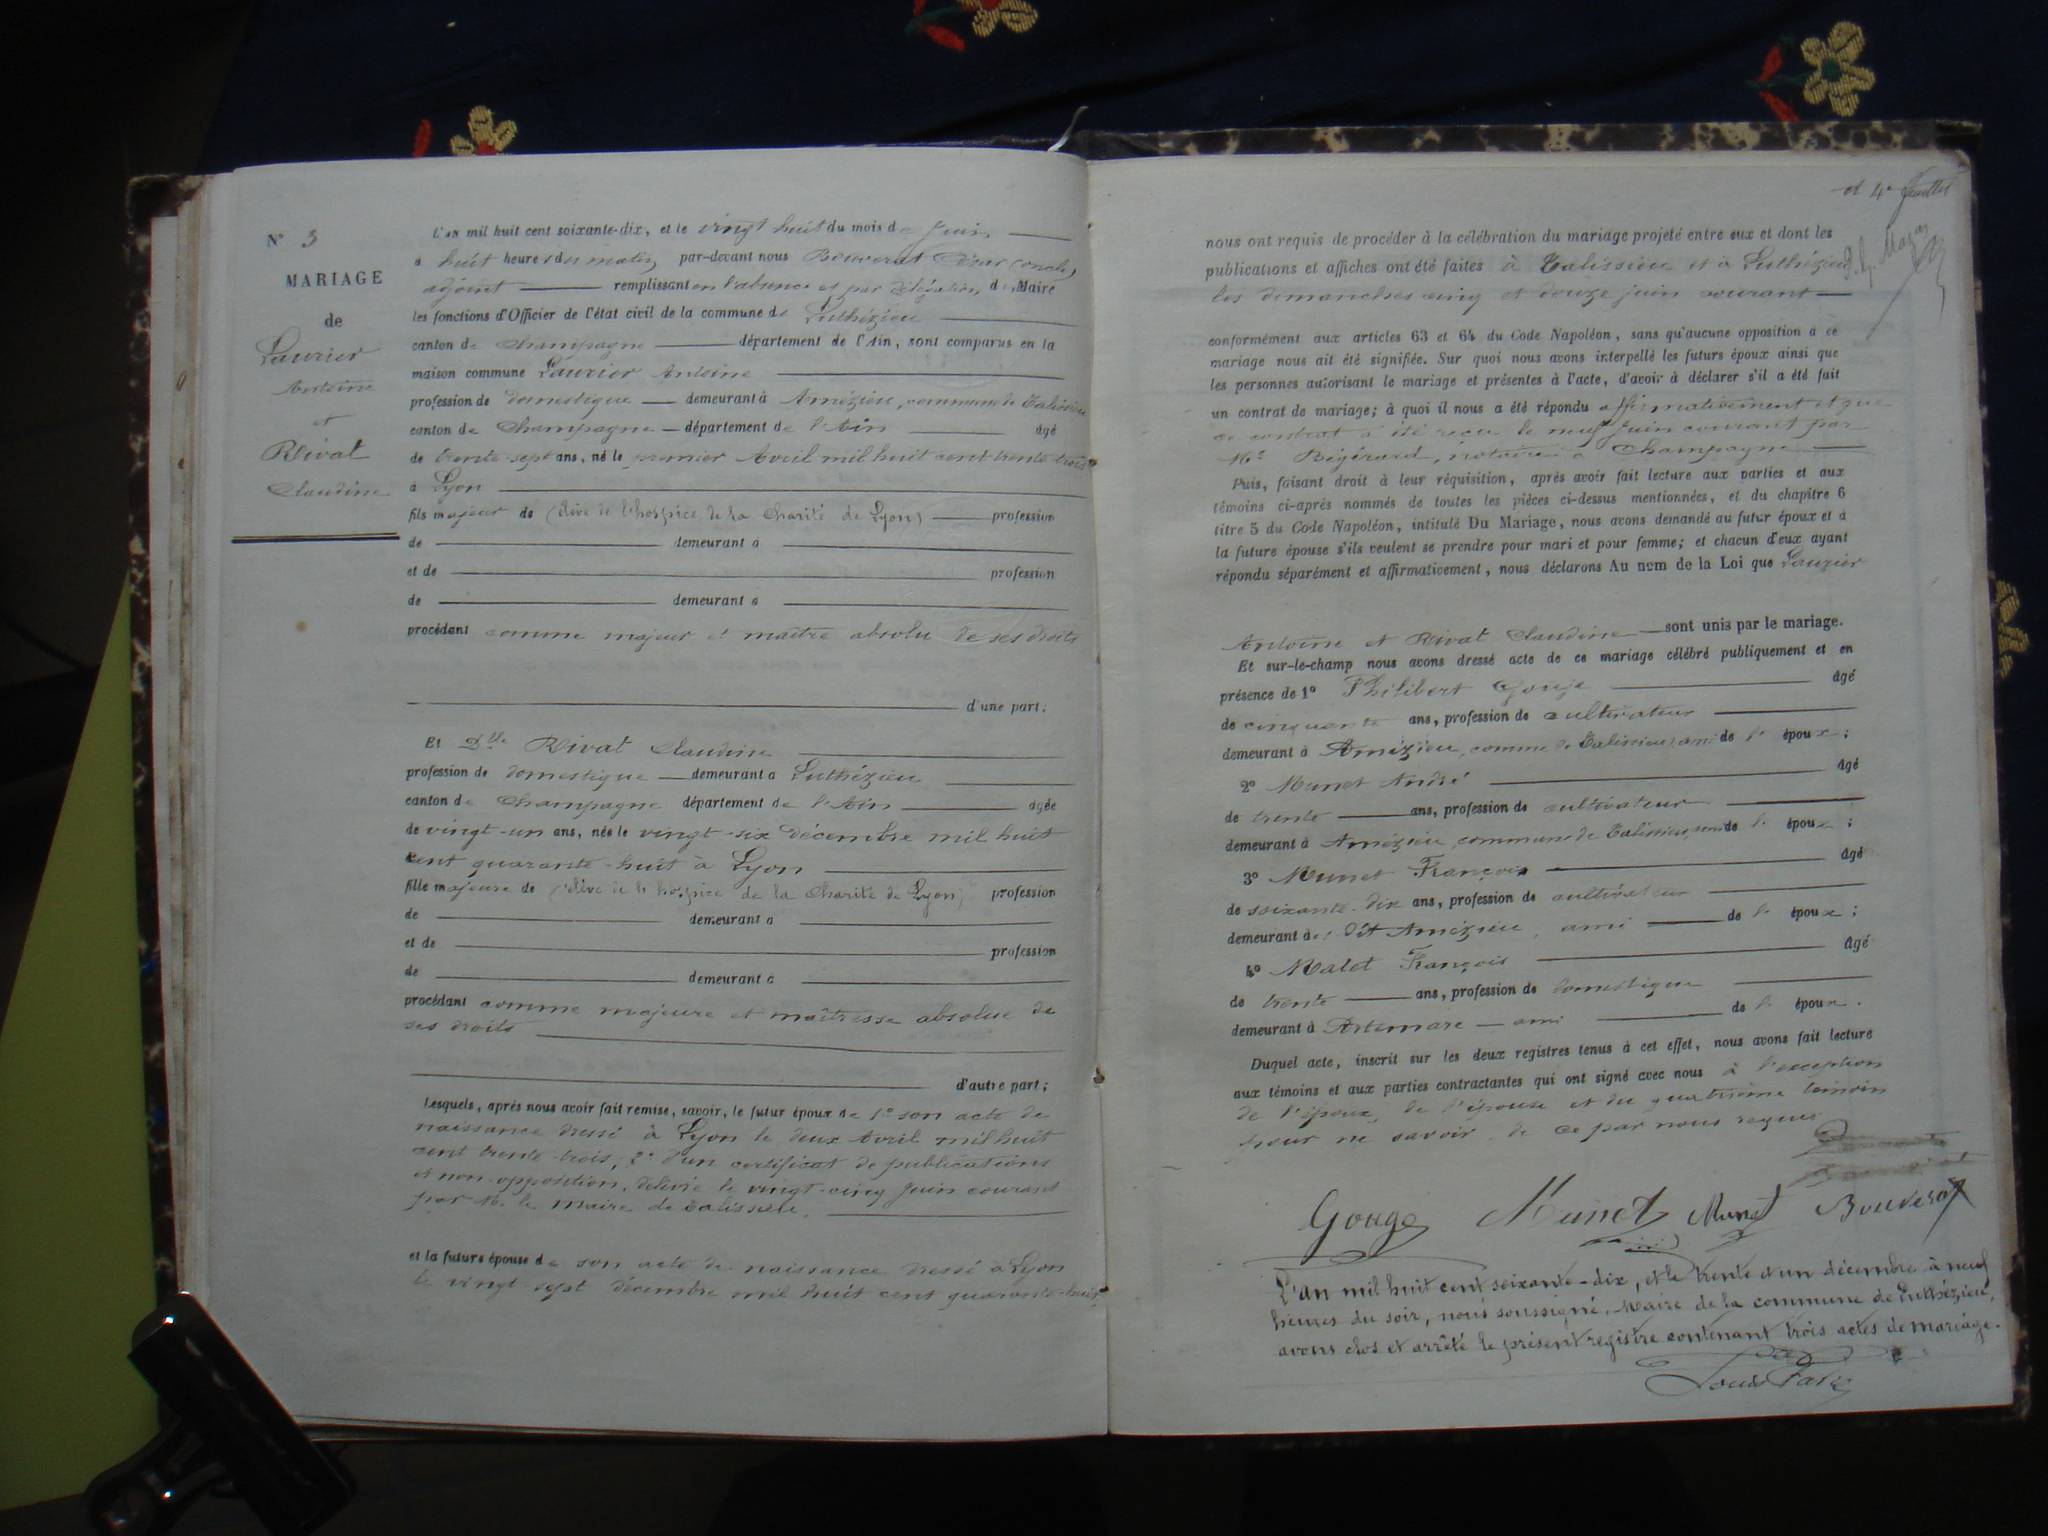 N° 3
MARIAGE
de
Laurier
Antoine
et
Rivat
Claudine
L'AN mil huit cent soixante-dix, et le vingt huit du mois de Juin
à huit heures du matin, par-devant nous Bouverat César (oncle)
adjoint remplissant en l'absence et par délégation du Maire
les fonctions d'Officier de l'état civil de la commune de Luthézieu
canton de Champagne département de l'Ain, sont comparus en la
maison commune Laurier Antoine
profession de domestique demeurant à Amézieu, commune de Talissieu
canton de Champagne département de l'Ain âgé
de trente-sept ans, né le premier Avril mil huit cent trente trois
à Lyon
fils majeur de (élève de l'hospice de la Charité de Lyon) profession
de demeurant à
et de profession
de demeurant à
procédant comme majeur et maître absolu de ses droits
d'une part;
Et Dlle Rivat Claudine
profession de domestique demeurant à Luthézieu
canton de Champagne département de l'Ain âgée
de vingt-un ans, née le vingt-six décembre mil huit
cent quarante-huit à Lyon
fille majeure de (élève de l'hospice de la Charité de Lyon) profession
de demeurant à
et de profession
de demeurant à
procédant comme majeure et maîtresse absolue de
ses droits
d'autre part;
Lesquels, après nous avoir fait remise, savoir, le futur époux de 1° son acte de
naissance dressé à Lyon le deux Avril mil huit
cent trente-trois; 2° d'un certificat de publications
et non-opposition, délivré le vingt-cinq Juin courant
par M. le maire de Talissieu.
et la future épouse de son acte de naissance dressé à Lyon
le vingt-sept décembre mil huit cent quarante-huit,
et 4e feuillet
nous ont requis de procéder à la célébration du mariage projeté entre eux et dont les
publications et affiches ont été faites à Talissieu et à Luthézieu
les dimanches cinq et douze juin courant
conformément aux articles 63 et 64 du Code Napoléon, sans qu'aucune opposition à ce
mariage nous ait été signifiée. Sur quoi nous avons interpellé les futurs époux ainsi que
les personnes autorisant le mariage et présentes à l'acte, d'avoir à déclarer s'il a été fait
un contrat de mariage; à quoi il nous a été répondu affirmativement et que
ce contrat a été reçu le neuf Juin courant par
Me Bégérard, notaire à Champagne
Puis, faisant droit à leur réquisition, après avoir fait lecture aux parties et aux
témoins ci-après nommés de toutes les pièces ci-dessus mentionnées, et du chapitre 6
titre 5 du Code Napoléon, intitulé Du Mariage, nous avons demandé au futur époux et à
la future épouse s'ils veulent se prendre pour mari et pour femme; et chacun d'eux ayant
répondu séparément et affirmativement, nous déclarons Au nom de la Loi que Laurier
Antoine et Rivat Claudine sont unis par le mariage.
Et sur-le-champ nous avons dressé acte de ce mariage célébré publiquement et en
présence de 1° Philibert Gouge âgé
de cinquante ans, profession de cultivateur
demeurant à Amézieu, comme de Talissieu, ami de l'époux;
2° Munet André âgé
de trente ans, profession de cultivateur
demeurant à Amézieu, commune de Talissieu, ami de l'époux;
3° Munet François âgé
de soixante-dix ans, profession de cultivateur
demeurant à dit Amézieu, ami de l'époux;
4° Malet François âgé
de trente ans, profession de domestique
demeurant à Artemare ami de l'époux.
Duquel acte, inscrit sur les deux registres tenus à cet effet, nous avons fait lecture
aux témoins et aux parties contractantes qui ont signé avec nous à l'exception
de l'époux, de l'épouse et du quatrième témoin
pour ne savoir, de ce par nous requis
Gouge Munet Munet Bouverat
L'an mil huit cent soixante-dix, et le trente et un décembre à neuf
heures du soir, nous soussigné, Maire de la commune de Luthézieu,
avons clos et arrêté le présent registre contenant trois actes de mariage.